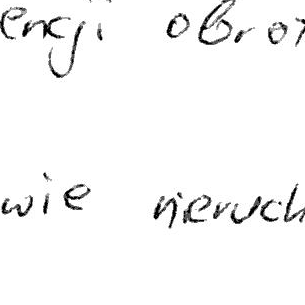 encji obrot
wie nieruch